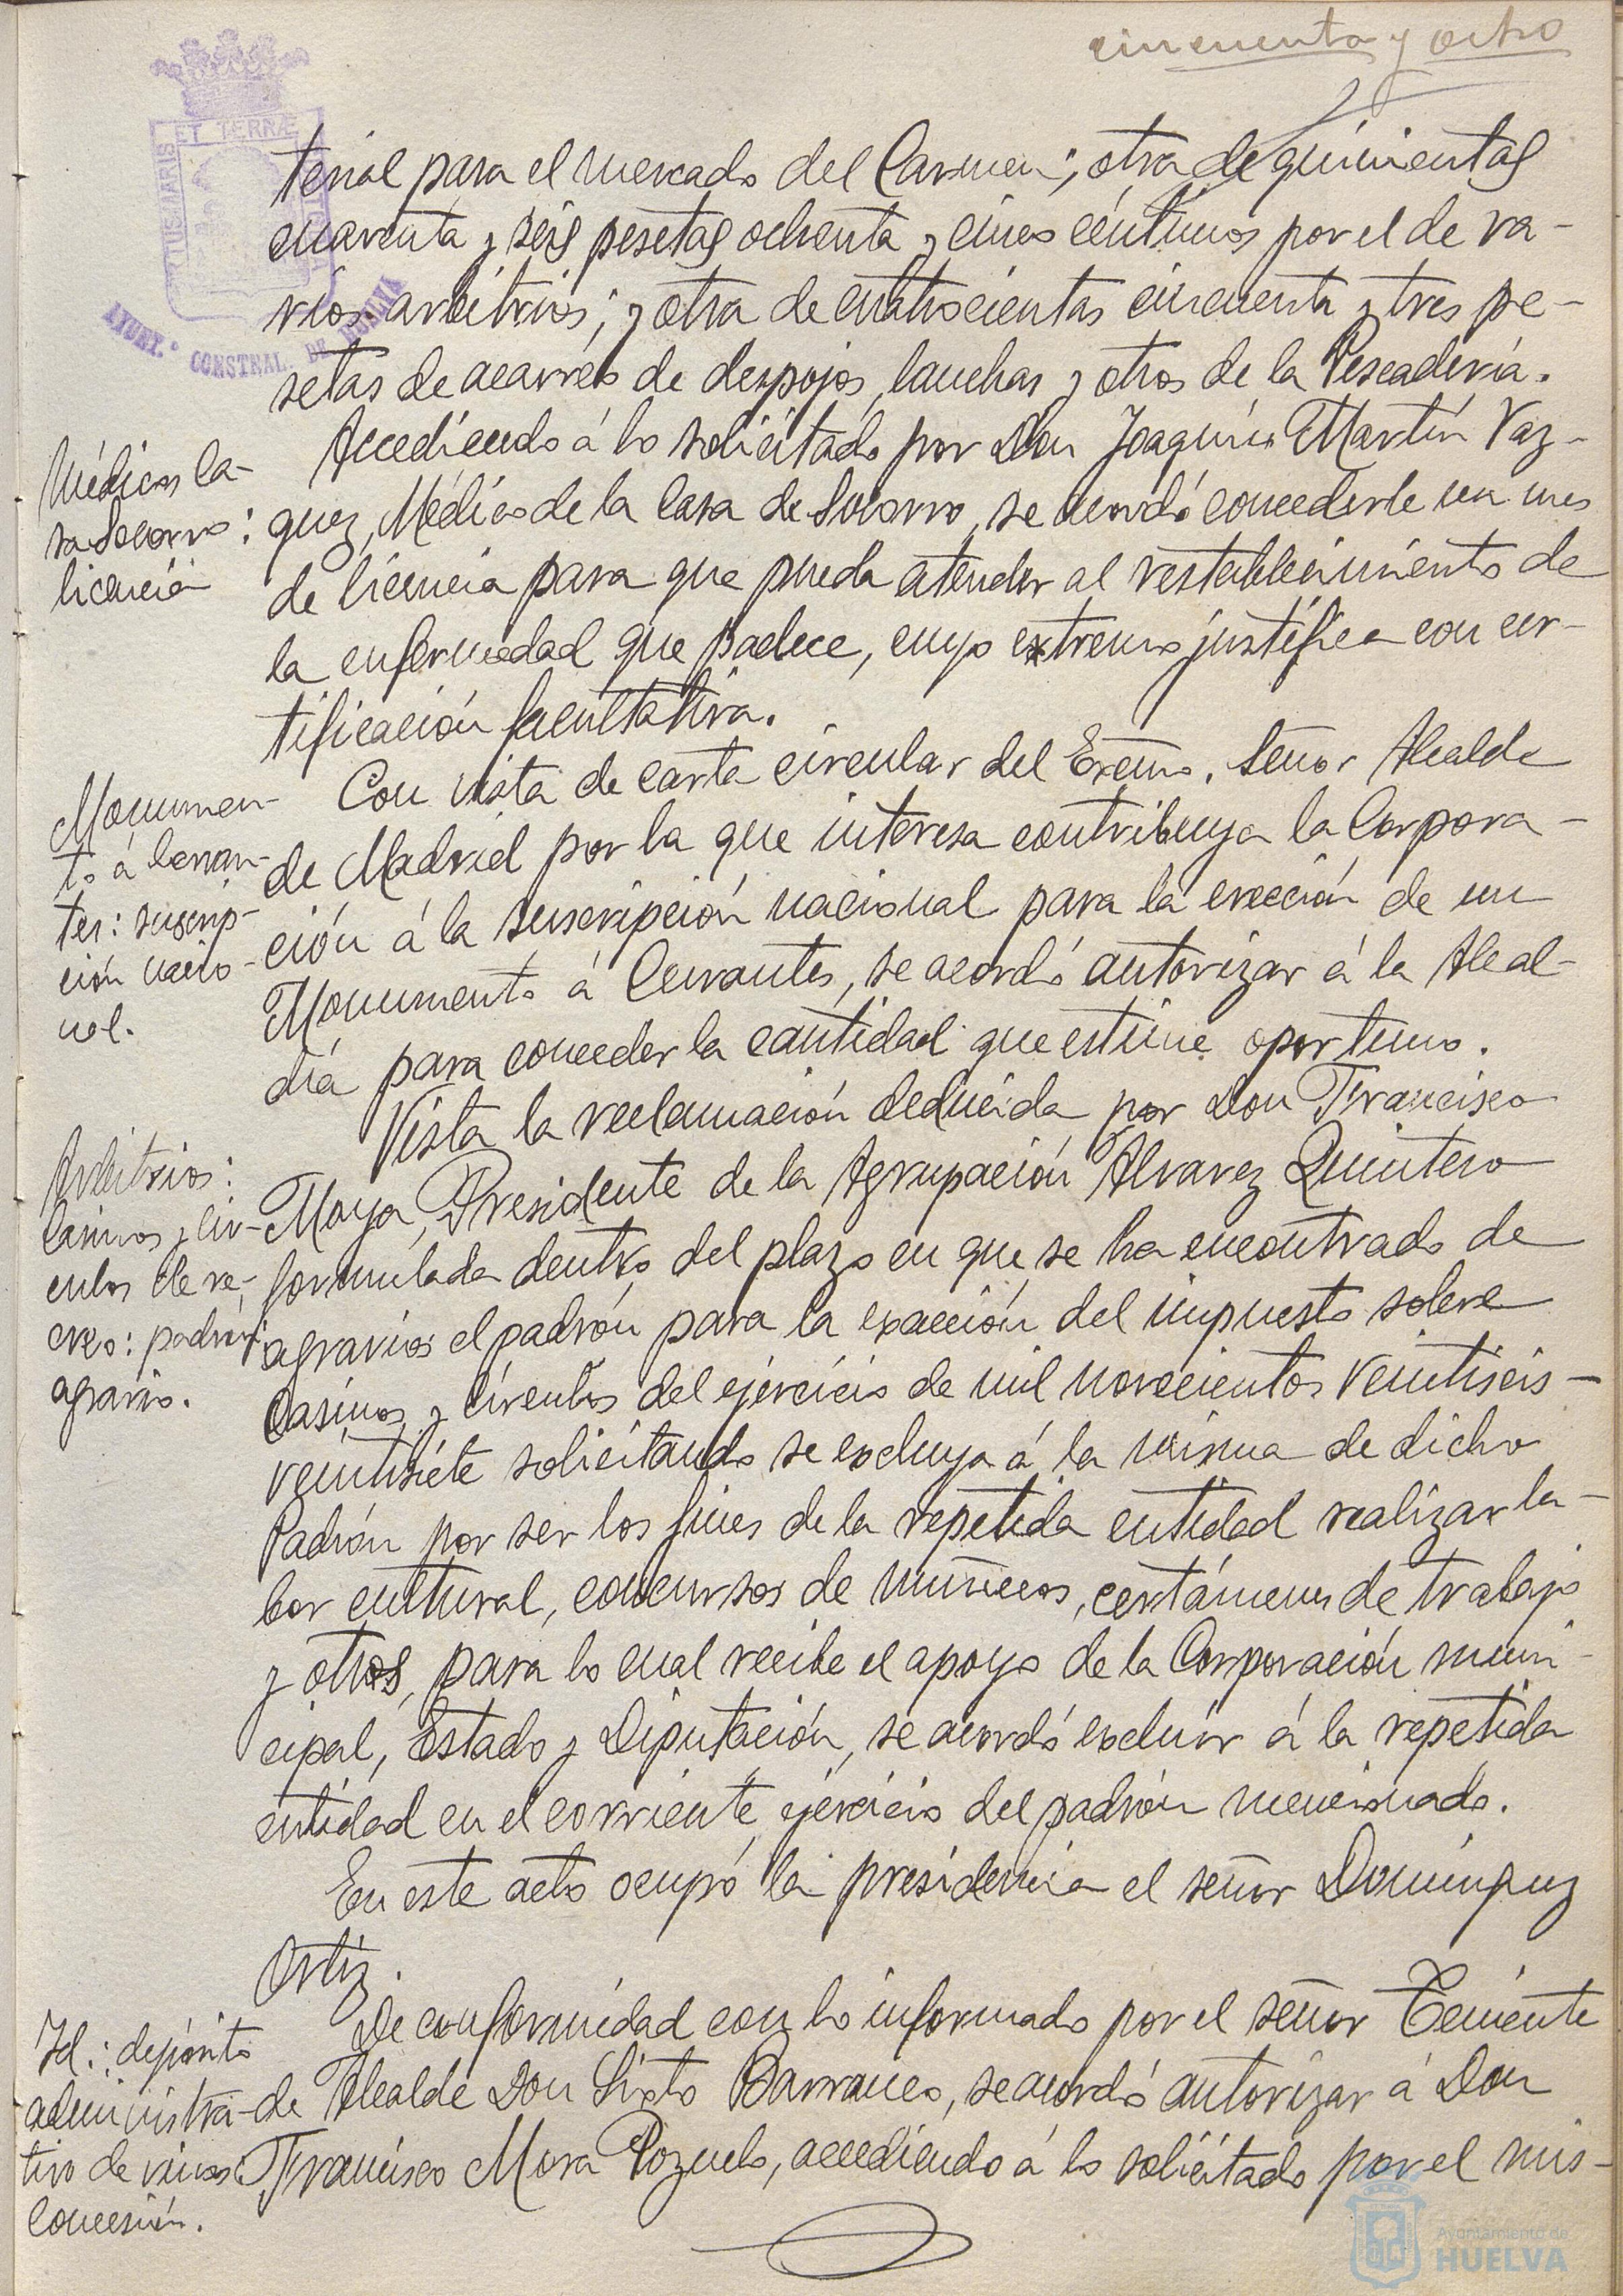 cincuenta y ocho
PORTUS MARIS ET TERRÆ CUSTODIA
AYUNT.º CONSTNAL. DE HUELVA
terial para el mercado del Carmen; otra de quinientas
cuarenta y seis pesetas ochenta y cinco céntimos por el de va-
rios arbitrios; y otra de cuatrocientas cincuenta y tres pe-
setas de acarreo de despojos, lanchas y otros de la Pescadería.
Médicos Ca-
sa Socorro:
licencia
Accediendo á lo solicitado por Don Joaquín Martín Vaz-
quez, Médico de la Casa de Socorro, se acordó concederle un mes
de licencia para que pueda atender al restablecimiento de
la enfermedad que padece, cuyo extremo justifica con cer-
tificación facultativa.
Monumen-
to á Cervan-
tes: suscrip-
ción nacio-
nal.
Con vista de carta circular del Excmo. Señor Alcalde
de Madrid por la que interesa contribuya la Corpora-
ción á la suscripción nacional para la erección de un
Monumento á Cervantes, se acordó autorizar á la Alcal-
día para conceder la cantidad que estime oportuno.
Arbitrios:
Casinos y Cír-
culos de re-
creo: padrón:
agravio.
Vista la reclamación deducida por Don Francisco
Moya, Presidente de la Agrupación Alvarez Quintero
formulada dentro del plazo en que se ha encontrado de
agravios el padrón para la exacción del impuesto sobre
Casinos y Círculos del ejercicio de mil novecientos veintiseis-
veintisiete solicitando se excluya á la misma de dicho
Padrón por ser los fines de la repetida entidad realizar la-
bor cultural, concursos de muñecos, certámenes de trabajo
y otros, para lo cual recibe el apoyo de la Corporación muni-
cipal, Estado y Diputación, se acordó excluir á la repetida
entidad en el corriente ejercicio del padrón mencionado.
En este acto ocupó la presidencia el señor Domínguez
Ortiz.
Id.: depósito
administra-
tivo de vinos:
Concesión.
De conformidad con lo informado por el señor Teniente
de Alcalde Don Sixto Barranco, se acordó autorizar á Don
Francisco Mora Pozuelo, accediendo á lo solicitado por el mis-
Ayuntamiento de
HUELVA